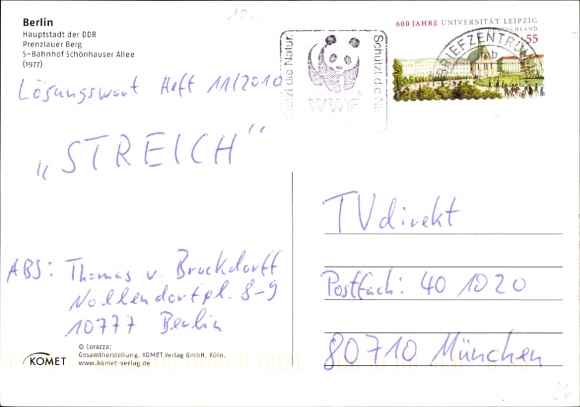 Berlin
Hauptstadt der DDR
Prenzlauer Berg
S-Bahnhof Schönhauser Allee
(1977)
17...
Schützt die Natur
WWF
Schützt die Na
600 JAHRE UNIVERSITÄT LEIPZIG
DEUTSCHLAND
55
BRIEFZENTRUM
Lösungswort Heft 11/2010
„STREICH“
TVdirekt
Postfach: 40 1020
80710 München
ABS: Thomas v. Brockdorff
Nollendorfpl. 8-9
10777 Berlin
KOMET
© Corazza;
Gesamtherstellung: KOMET Verlag GmbH, Köln.
www.komet-verlag.de